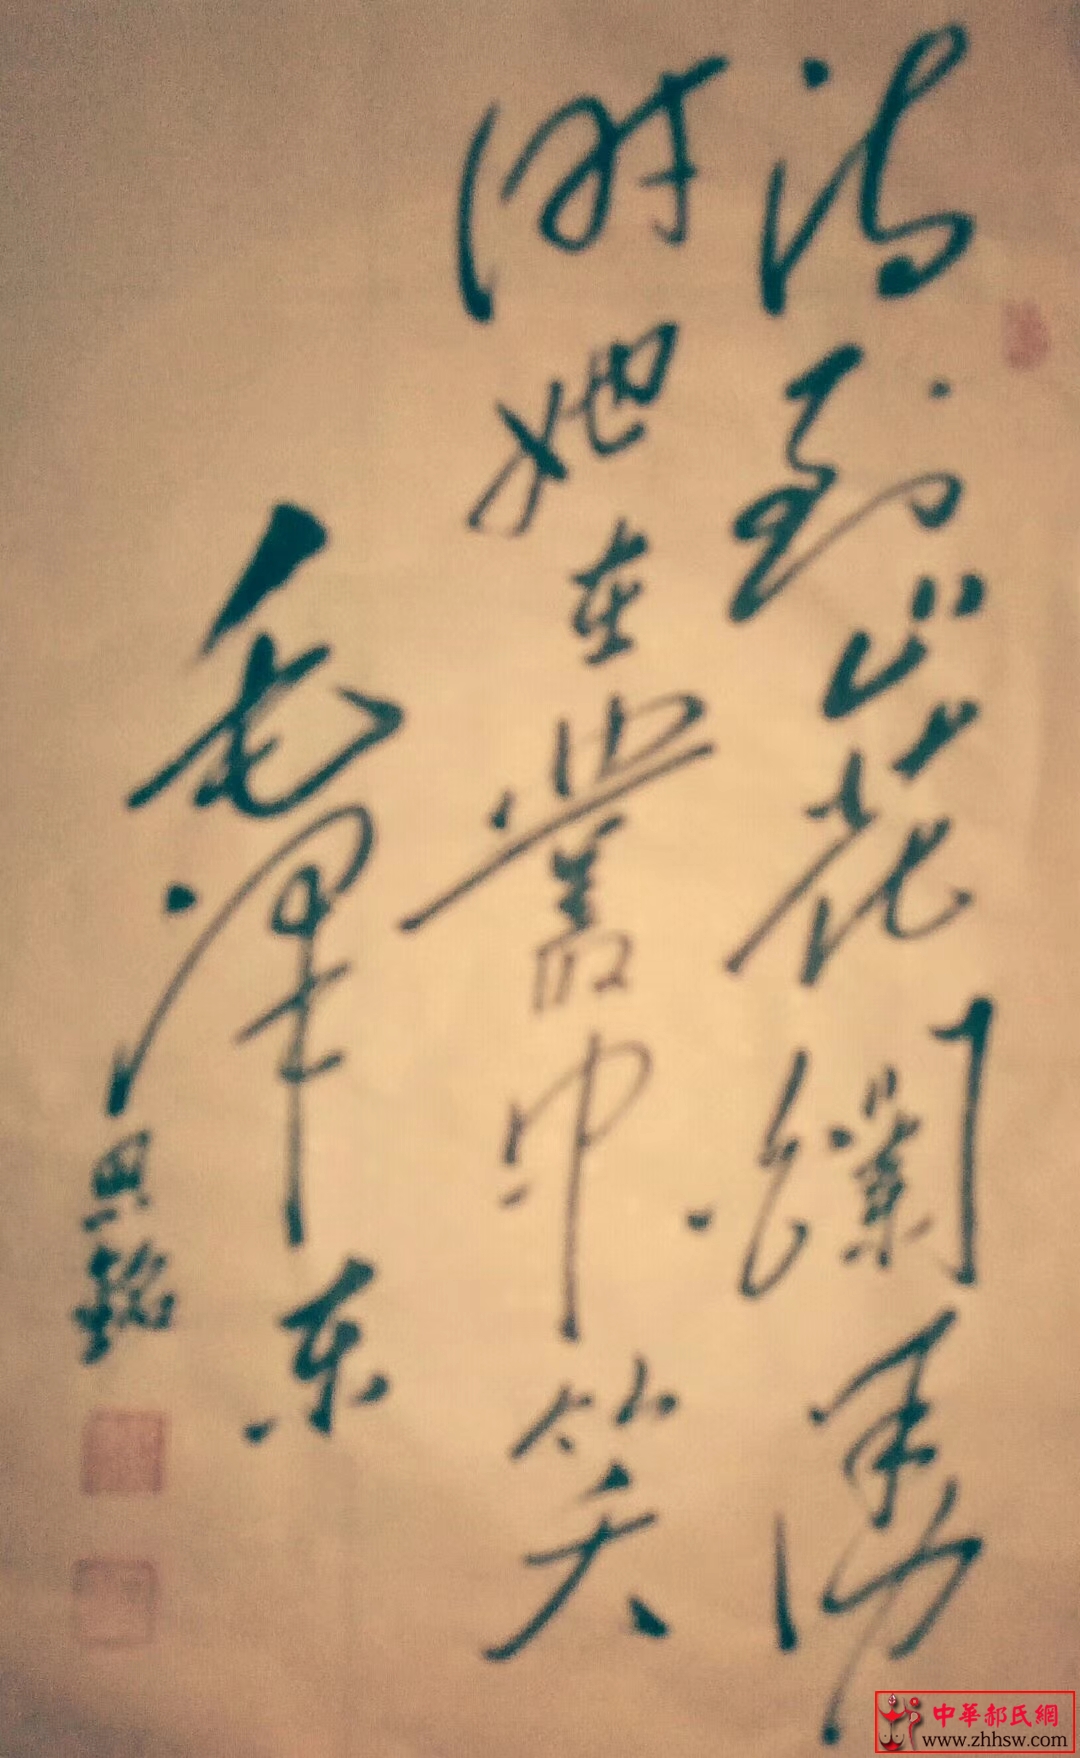 待到山花爛漫
時她在叢中笑
毛澤东
銘
中華郝氏網
www.zhhsw.com